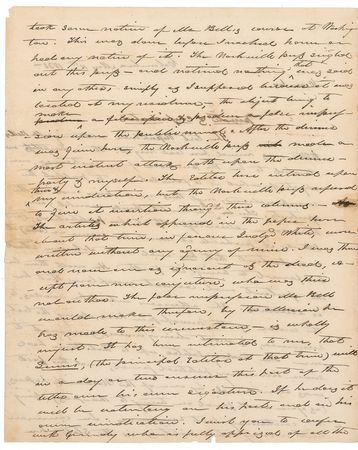 took some notice of Mr Bell's course at Washing
ton. This was done before I reached home or
had any notice of it. The Nashville press singled
out this piece - and noticed nothing that was said
in any other, simply as I supposed because it was
located at my residence, the object being to
make a false impres
sion upon the public mind. After the dinner
was given here, the Nashville press made a
most violent attack both upon the dinner
party & myself. The Editor here entered upon
my vindication, but the Nashville press refused
to give it insertion through their columns.
The articles which appeared in the paper here
about that time, in favour of Judge White, were
written without any agency of mine. I was then
and now am as ignorant of the deed, ex-
cept from mere conjecture, who was their
real author. The false impression Mr Bell
would make therefore, by the allusion he
has made to this circumstance, is wholly
unjust. It has been intimated to me, that
(the principal Editor at that time) will
in a day or two answer this part of the
letter over his own signature. If he does it
will be voluntary on his part and in his
own vindication. I wish you to confer
with Grundy who is fully apprized of all the